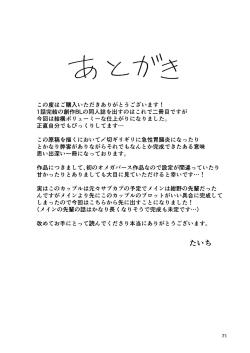 あとがき
この度はご購入いただきありがとうございます！
1話完結の創作BLの同人誌を出すのはこれで二冊目ですが
今回は結構ボリューミーな仕上がりになりました。
正直自分でもびっくりしてます…
この原稿を描くにおいて〆切ギリギリに急性胃腸炎になったり
とかなり弊害がありながらそれでもなんとか完成できたある意味
思い出深い一冊になっております。
作品につきまして、初のオメガバース作品なので設定が間違っていたり
甘かったりとありましても大目に見ていただけると幸いです…！
実はこのカップルは元々サブカプの予定でメインは紺野の先輩だった
んですがメインより先にこのカップルのプロットがいい具合に完成して
しまったので今回はこちらから先に出すことになりました！
(メインの先輩の話はかなり長くなりそうで完成も未定です…)
改めてお手にとって読んでくださり本当にありがとうございます。
たいち